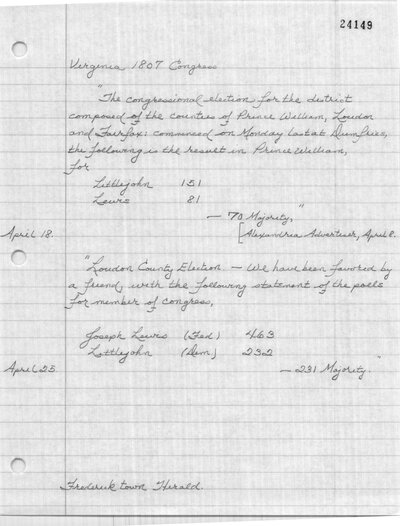 24149
Virginia 1807 Congress
"The congressional election for the district
composed of the counties of Prince William, Loudon
and Fairfax: commenced on Monday last at Dumfries,
the following is the result in Prince William,
for
Littlejohn 151
Lewis 81
— 70 Majority."
April 18. [Alexandria Advertiser, April 8.
"Loudon County Election. — We have been favored by
a friend, with the following statement of the polls
for member of congress,
Joseph Lewis (Fed) 463
Littlejohn (Dem) 232
April 25 — 231 Majority."
Frederick town Herald.